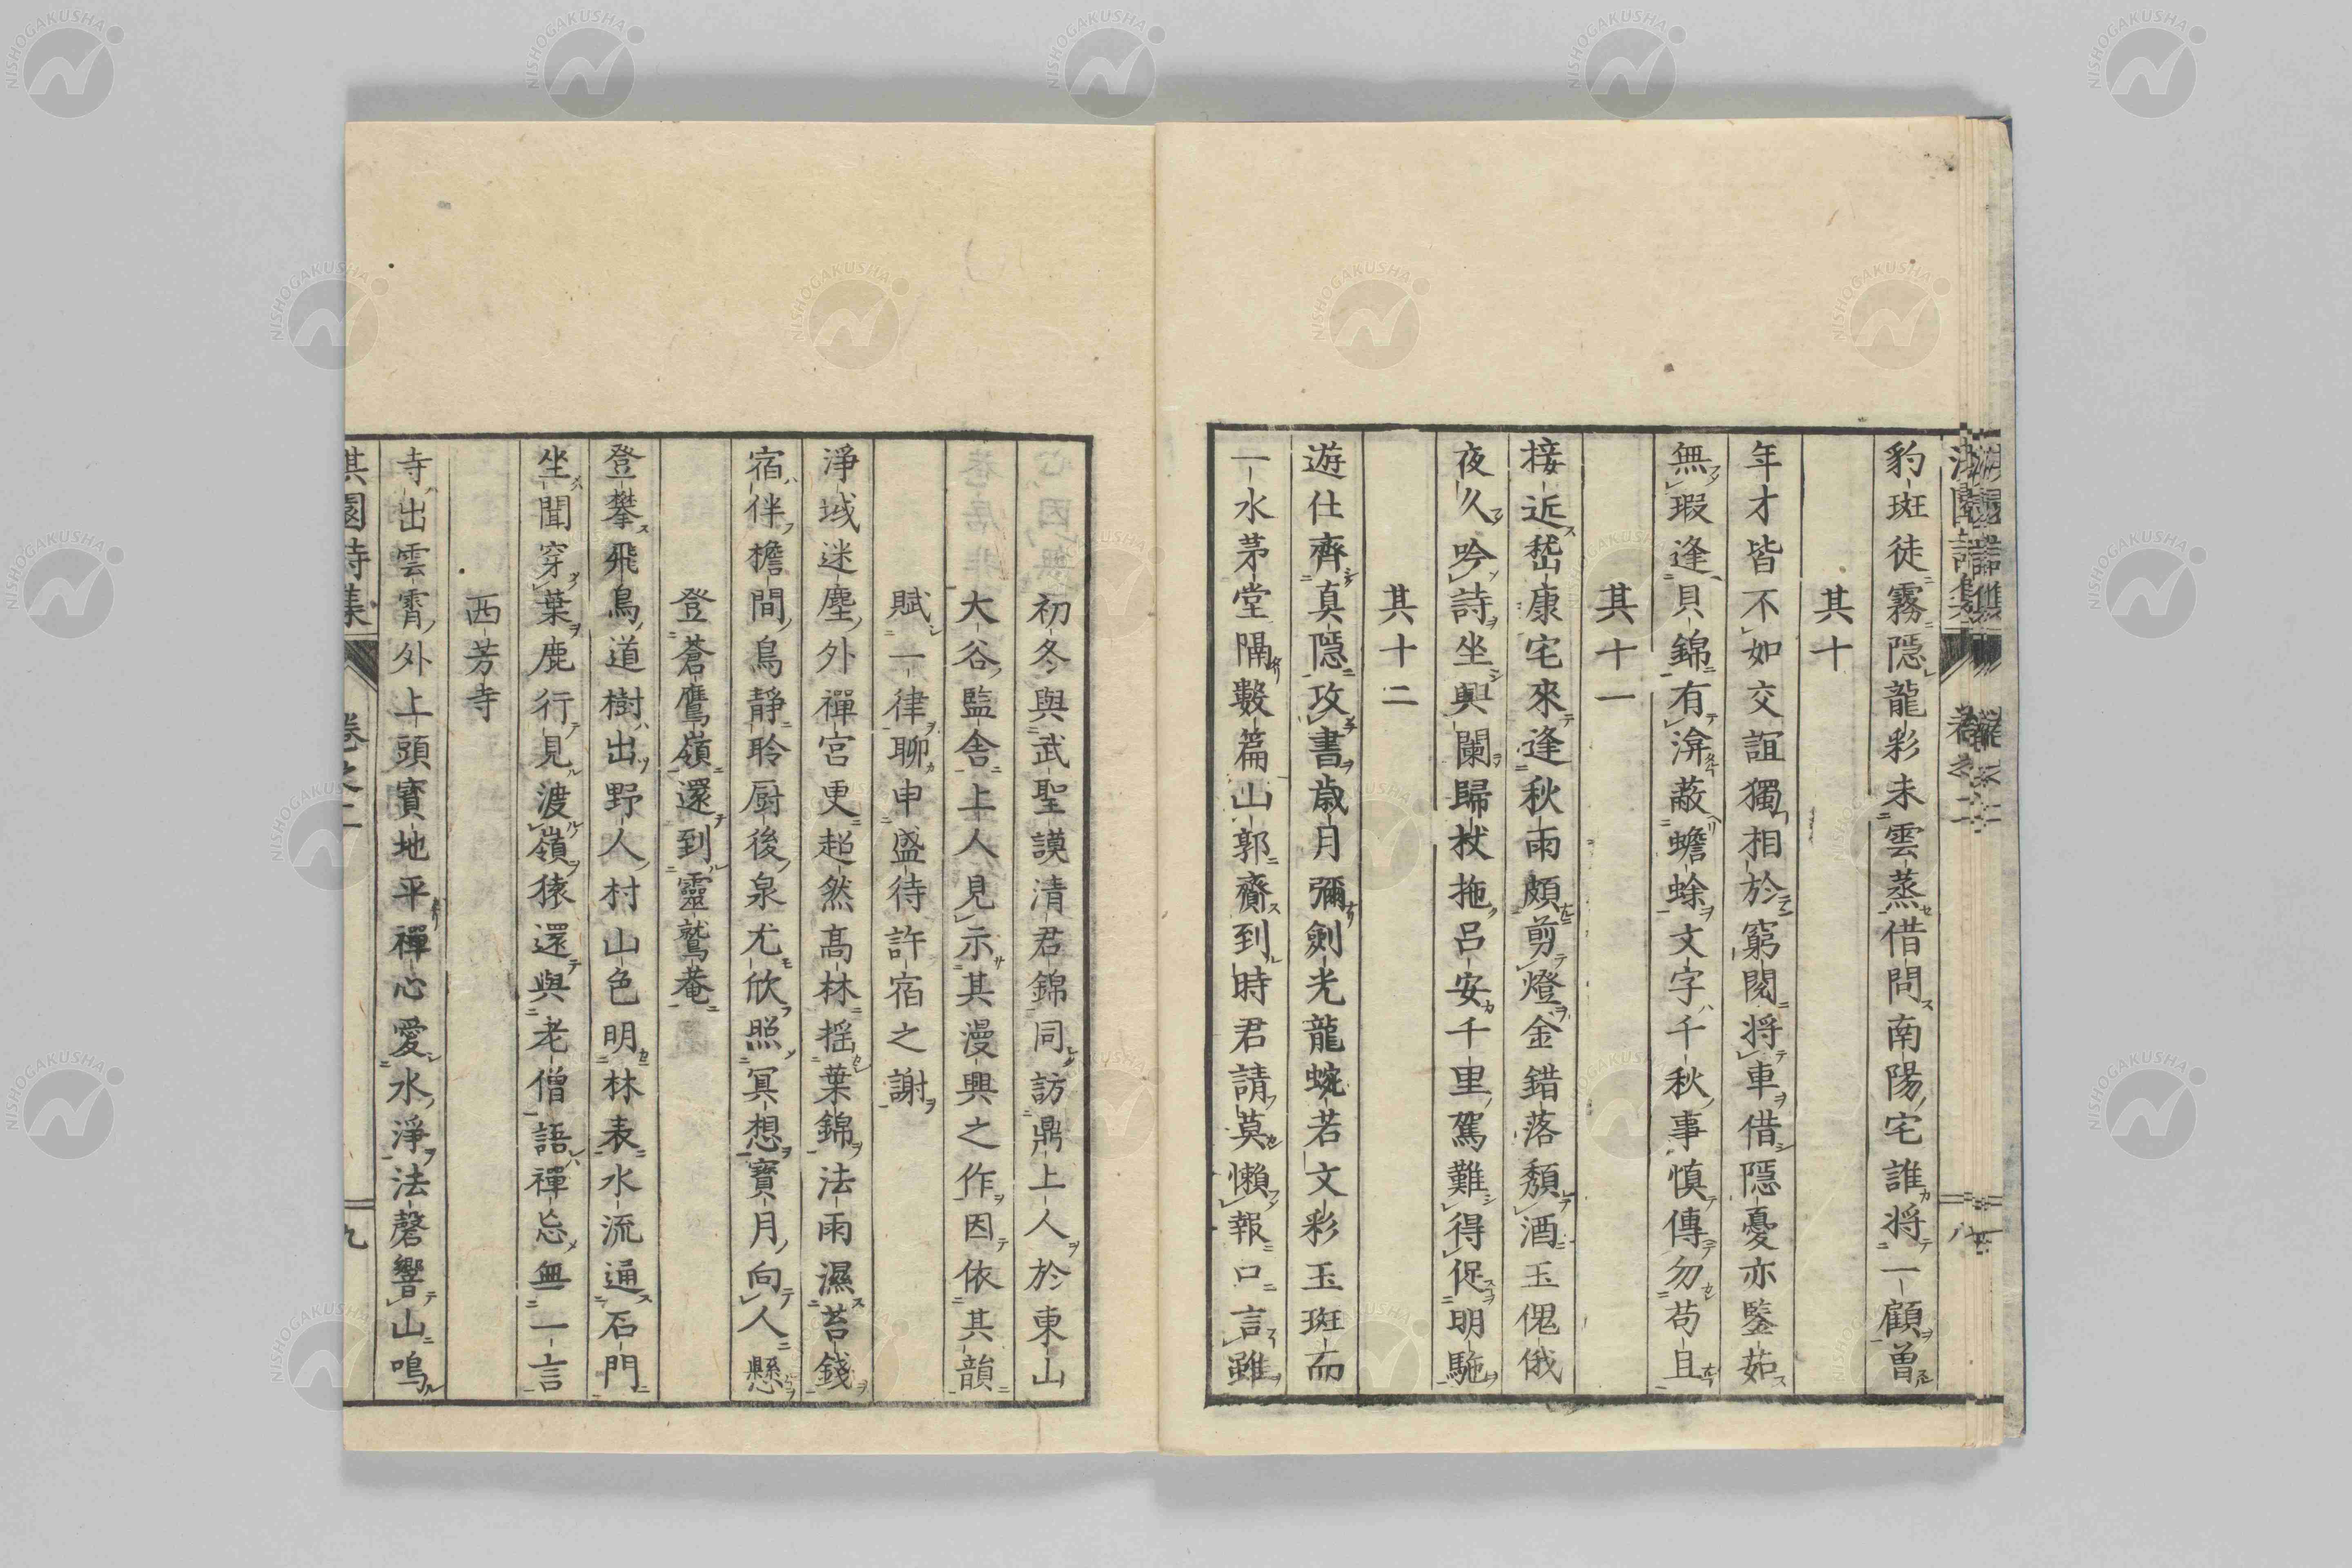 豹斑徒霧隱龍彩未雲蒸借問南陽宅誰将一顧曽
其十
年才皆不如交誼獨相於窮閡将車借隱憂亦鑒茹
無瑕逢貝錦有渰蔽蟾蜍文字千秋事慎傳勿苟且
其十一
接近嵆康宅來逢秋雨頗剪燈金錯落頽酒玉傀俄
夜久吟詩坐興闌歸杖拖呂安千里駕難得促明駞
其十二
遊仕齊真隱攻書歳月彌劍光龍蜿若文彩玉斑而
一水茅堂隔數篇山郭齎到時君請莫懶報口言雖
初冬與武聖謨清君錦同訪鼎上人於東山
大谷監舎上人見示其漫興之作因依其韻
賦一律聊申盛待許宿之謝
淨域迷塵外禪宮更超然髙林揺葉錦法雨濕苔錢
宿伴檐間鳥靜聆厨後泉尤欣照冥想寶月向人懸
登蒼鷹嶺還到靈鷲菴
登攀飛鳥道樹出野人村山色明林表水流通石門
坐聞穿葉鹿行見渡嶺猿還與老僧語禪忘無一言
西芳寺
寺出雲霄外上頭寶地平禪心愛水淨法磬響山鳴
淇園詩集 卷之二 九